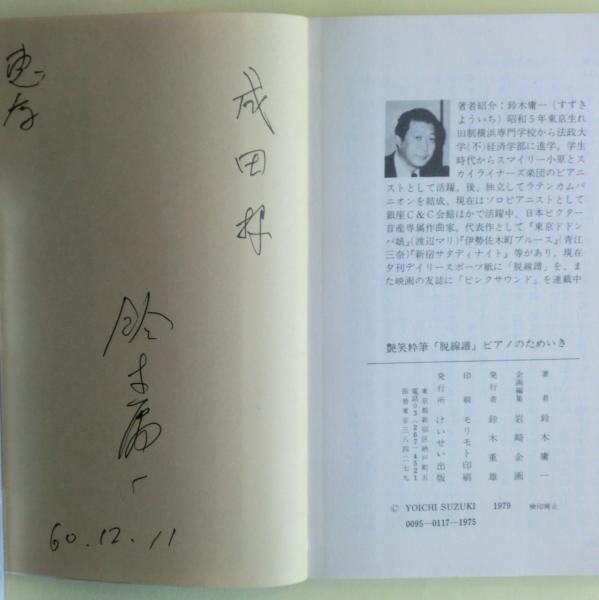 恵存
成田様
鈴木庸一
60.12.11
著者紹介:鈴木庸一(すずき
よういち)昭和5年東京生れ
旧制横浜専門学校から法政大
学(不)経済学部に進学。学生
時代からスマイリー小原とス
カイライナーズ楽団のピアニ
ストとして活躍。後、独立してラテンカムパ
ニオンを結成。現在はソロピアニストとして
銀座C&C会館ほかで活躍中。日本ビクター
音産専属作曲家。代表作として『東京ドドン
パ娘』(渡辺マリ)『伊勢佐木町ブルース』(青江
三奈)『新宿サタディナイト』等があり。現在
夕刊デイリースポーツ紙に「脱線譜」を、ま
た映画の友誌に「ピンクサウンド」を連載中
艶笑粋筆「脱線譜」ピアノのためいき
著者 鈴木庸一
企画編集 岩崎企画
発行者 鈴木重雄
印刷 モリモト印刷
発行所 けいせい出版
東京都新宿区納戸町五
電話03-267-4521
振替東京三-八四二七九
© YOICHI SUZUKI 1979 検印廃止
0095-0117-1975